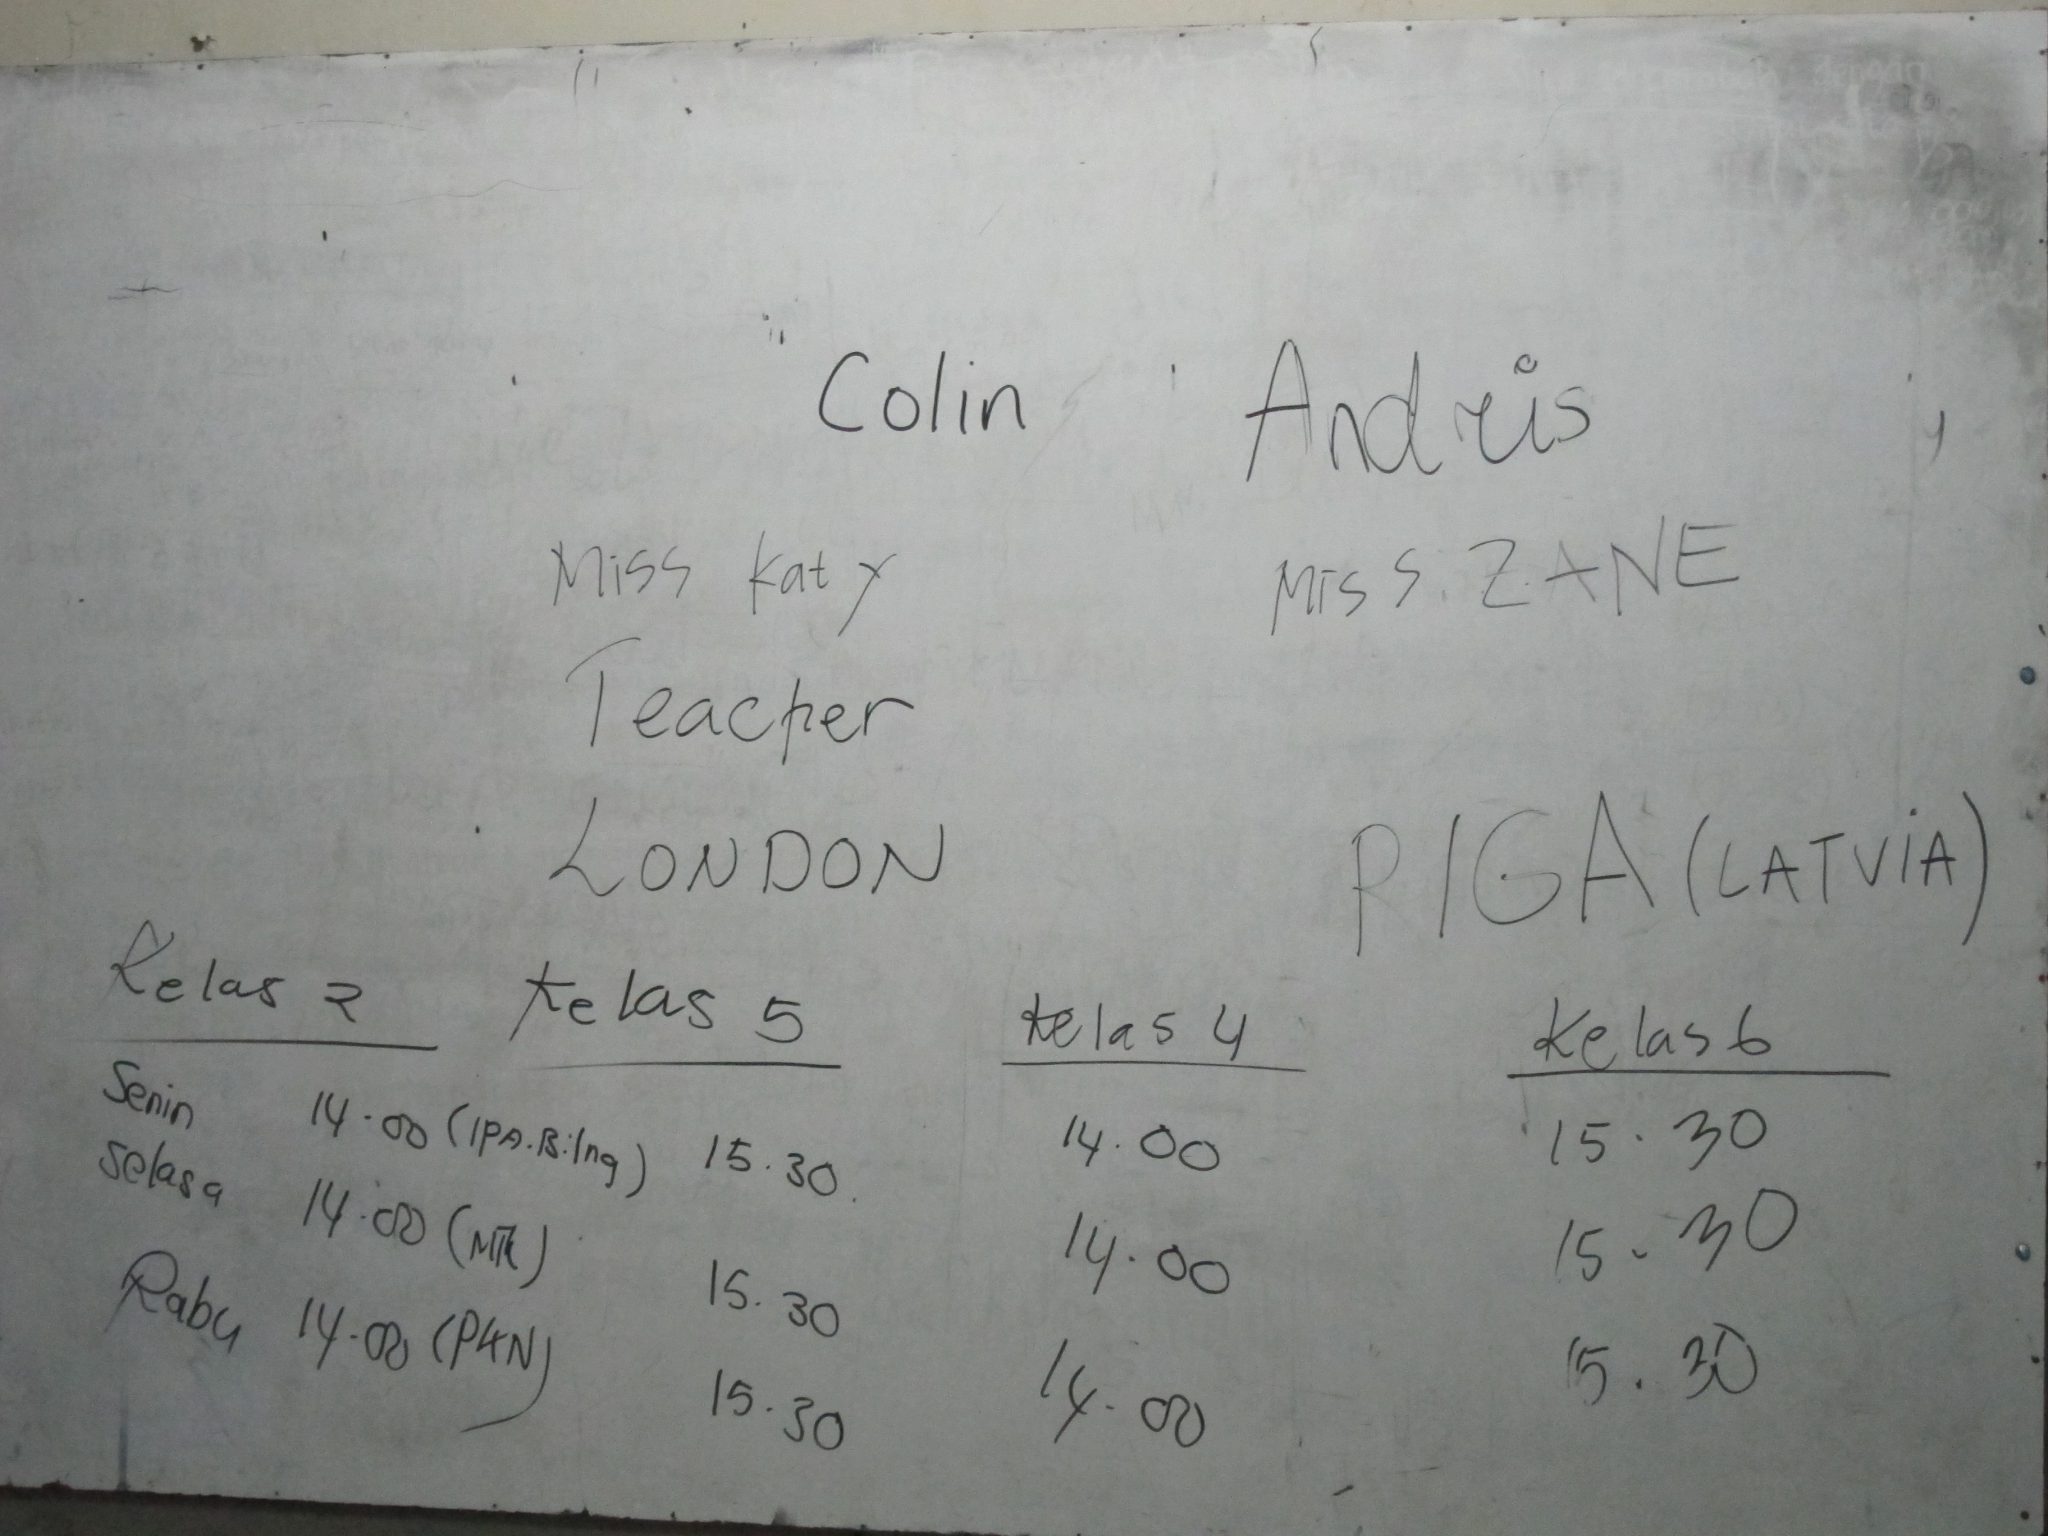 Colin Andris
Miss Katy Miss. ZANE
Teacher
LONDON RIGA (LATVIA)
Kelas 2 Kelas 5 Kelas 4 Kelas 6
Senin 14.00 (IPA.B.Ing) 15.30. 14.00 15.30
Selasa 14.00 (MTK) 15.30 14.00 15.30
Rabu 14.00 (PKN) 15.30 14.00 15.30